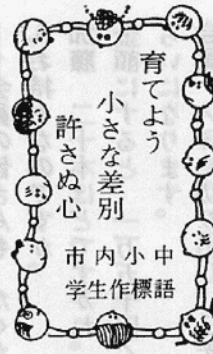 育てよう
小さな差別
許さぬ心
市内小中
学生作標語